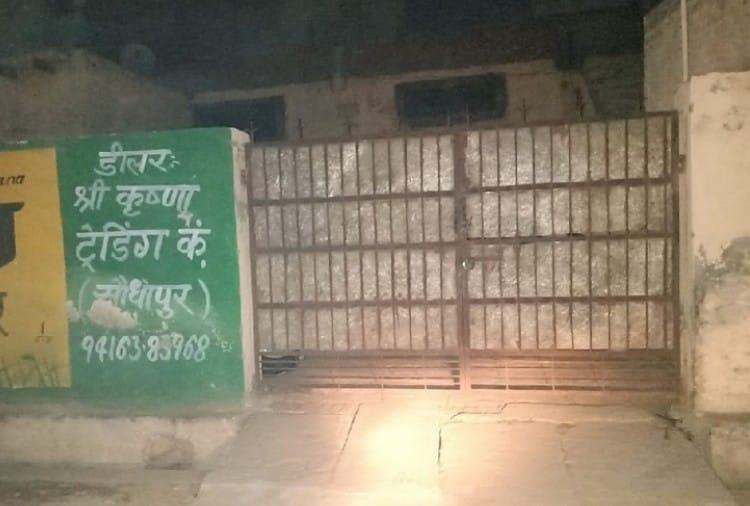 डीलर:-
श्री कृष्णा
ट्रेडिंग कं.
(सौधापुर)
94163-83968